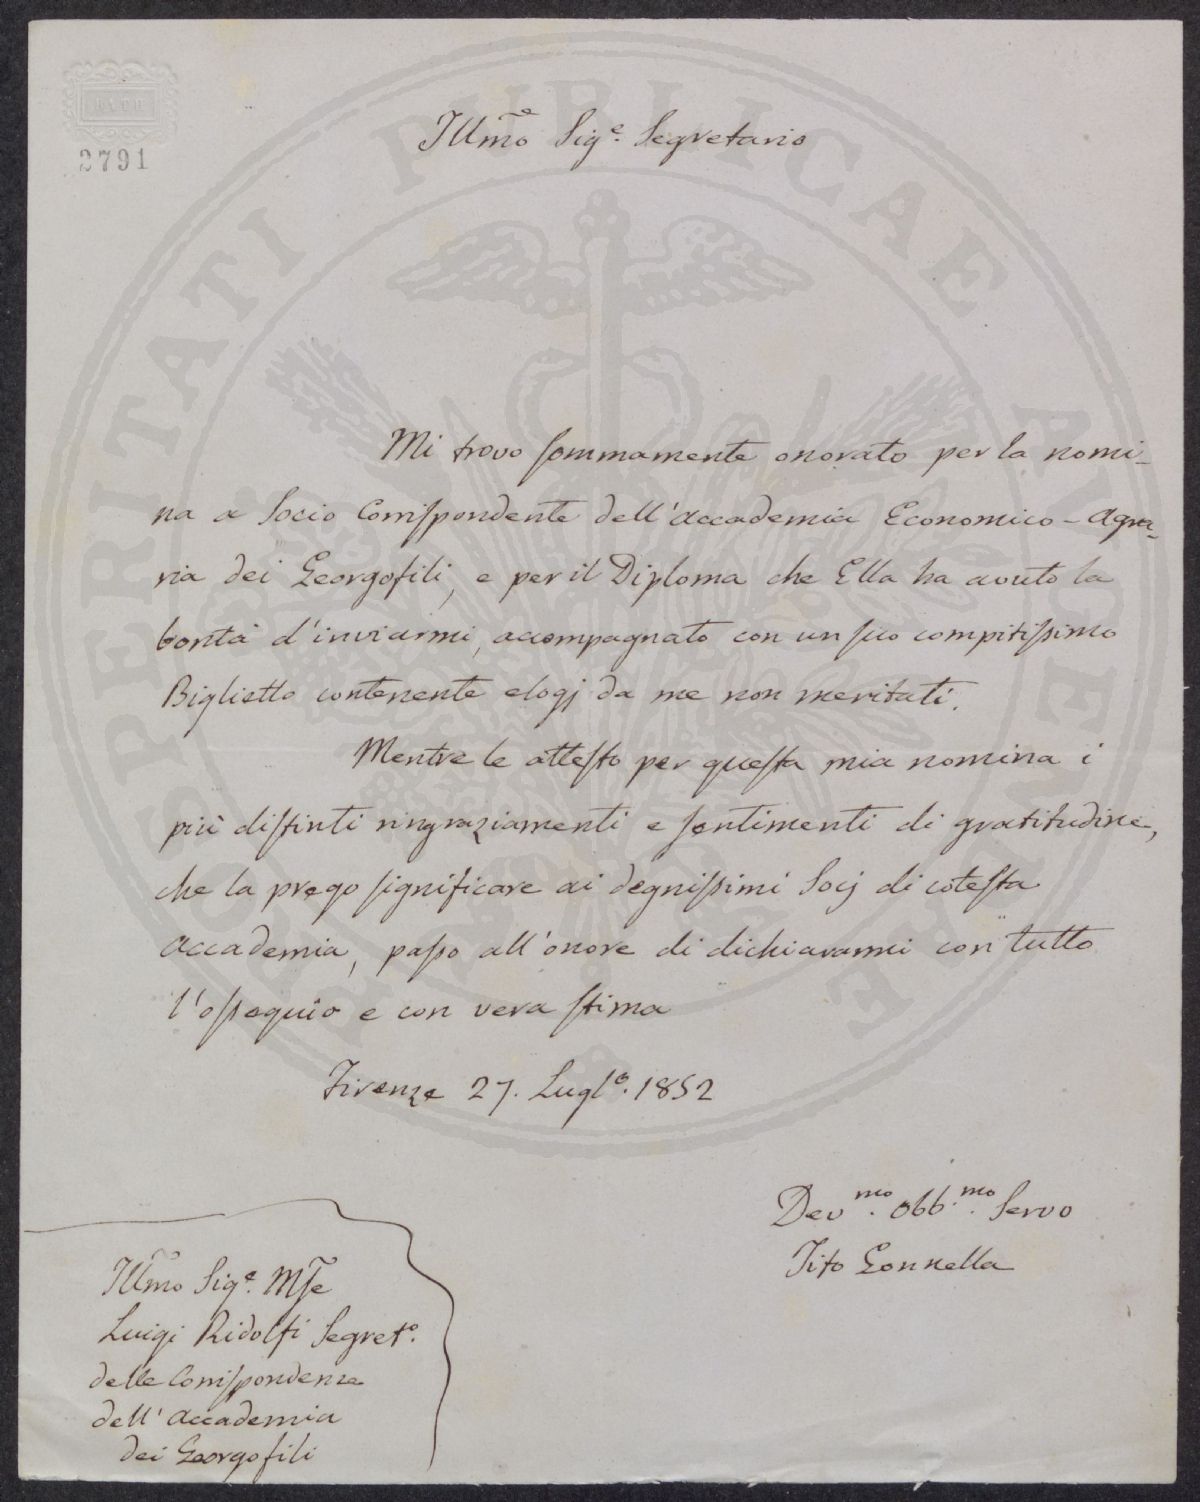 BATH
2791
Illmo Sige. Segretario
Mi trovo sommamente onorato per la nomi-
na a Socio Corrispondente dell'Accademia Economico-Agra-
ria dei Georgofili, e per il Diploma che Ella ha avuto la
bontà d'inviarmi, accompagnato con un suo compitissimo
Biglietto contenente elogj da me non meritati.
Mentre le attesto per questa mia nomina i
più distinti ringraziamenti e sentimenti di gratitudine,
che la prego significare ai degnissimi Socj di cotesta
Accademia, passo all'onore di dichiararmi con tutto
l'ossequio e con vera stima
Firenze 27. Luglo. 1852
Devmo. Obb.mo. Servo
Tito Gonnella
Illmo Sige. Mse
Luigi Ridolfi Segreto.
delle Corrispondenze
dell'Accademia
dei Georgofili
PROSPERITATI PUBLICAE AUGENDAE